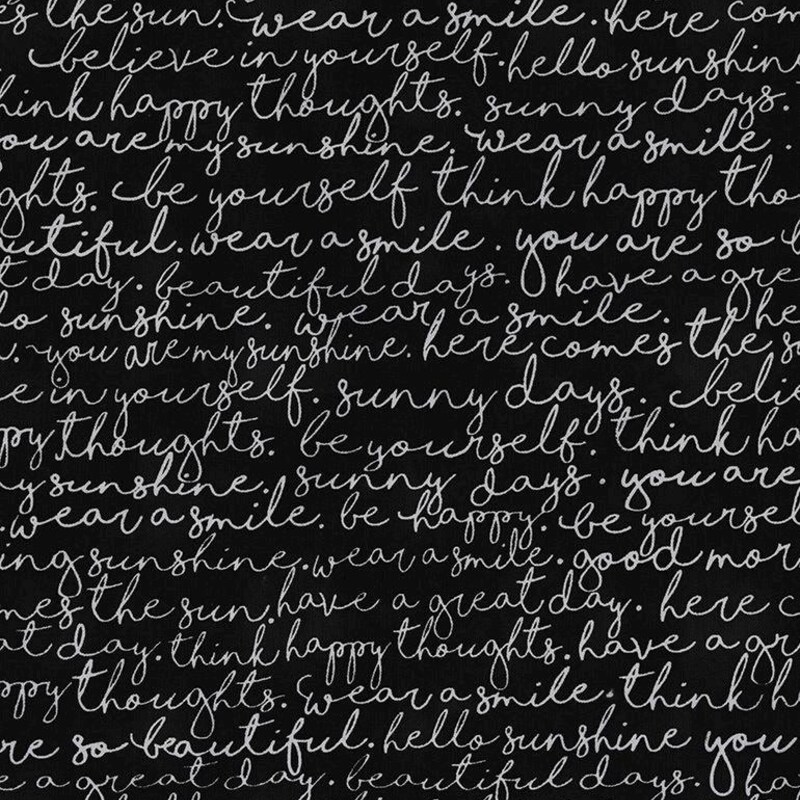 s the sun. wear a smile. here com
believe in yourself. hello sunshin
hink happy thoughts. sunny days.
ou are my sunshine. wear a smile.
ghts. be yourself think happy tho
autiful. wear a smile. you are so b
t day. beautiful days. have a gre
lo sunshine. wear a smile. he
. you are my sunshine. here comes the su
e in yourself. sunny days. belie
py thoughts. be yourself. think ha
y sunshine. sunny days. you are
. wear a smile. be happy. be yoursel
ing sunshine. wear a smile. good mor
mes the sun. have a great day. here c
at day. think happy thoughts. have a gr
ppy thoughts. wear a smile. think h
re so beautiful. hello sunshine you
e a great day. beautiful days. ha